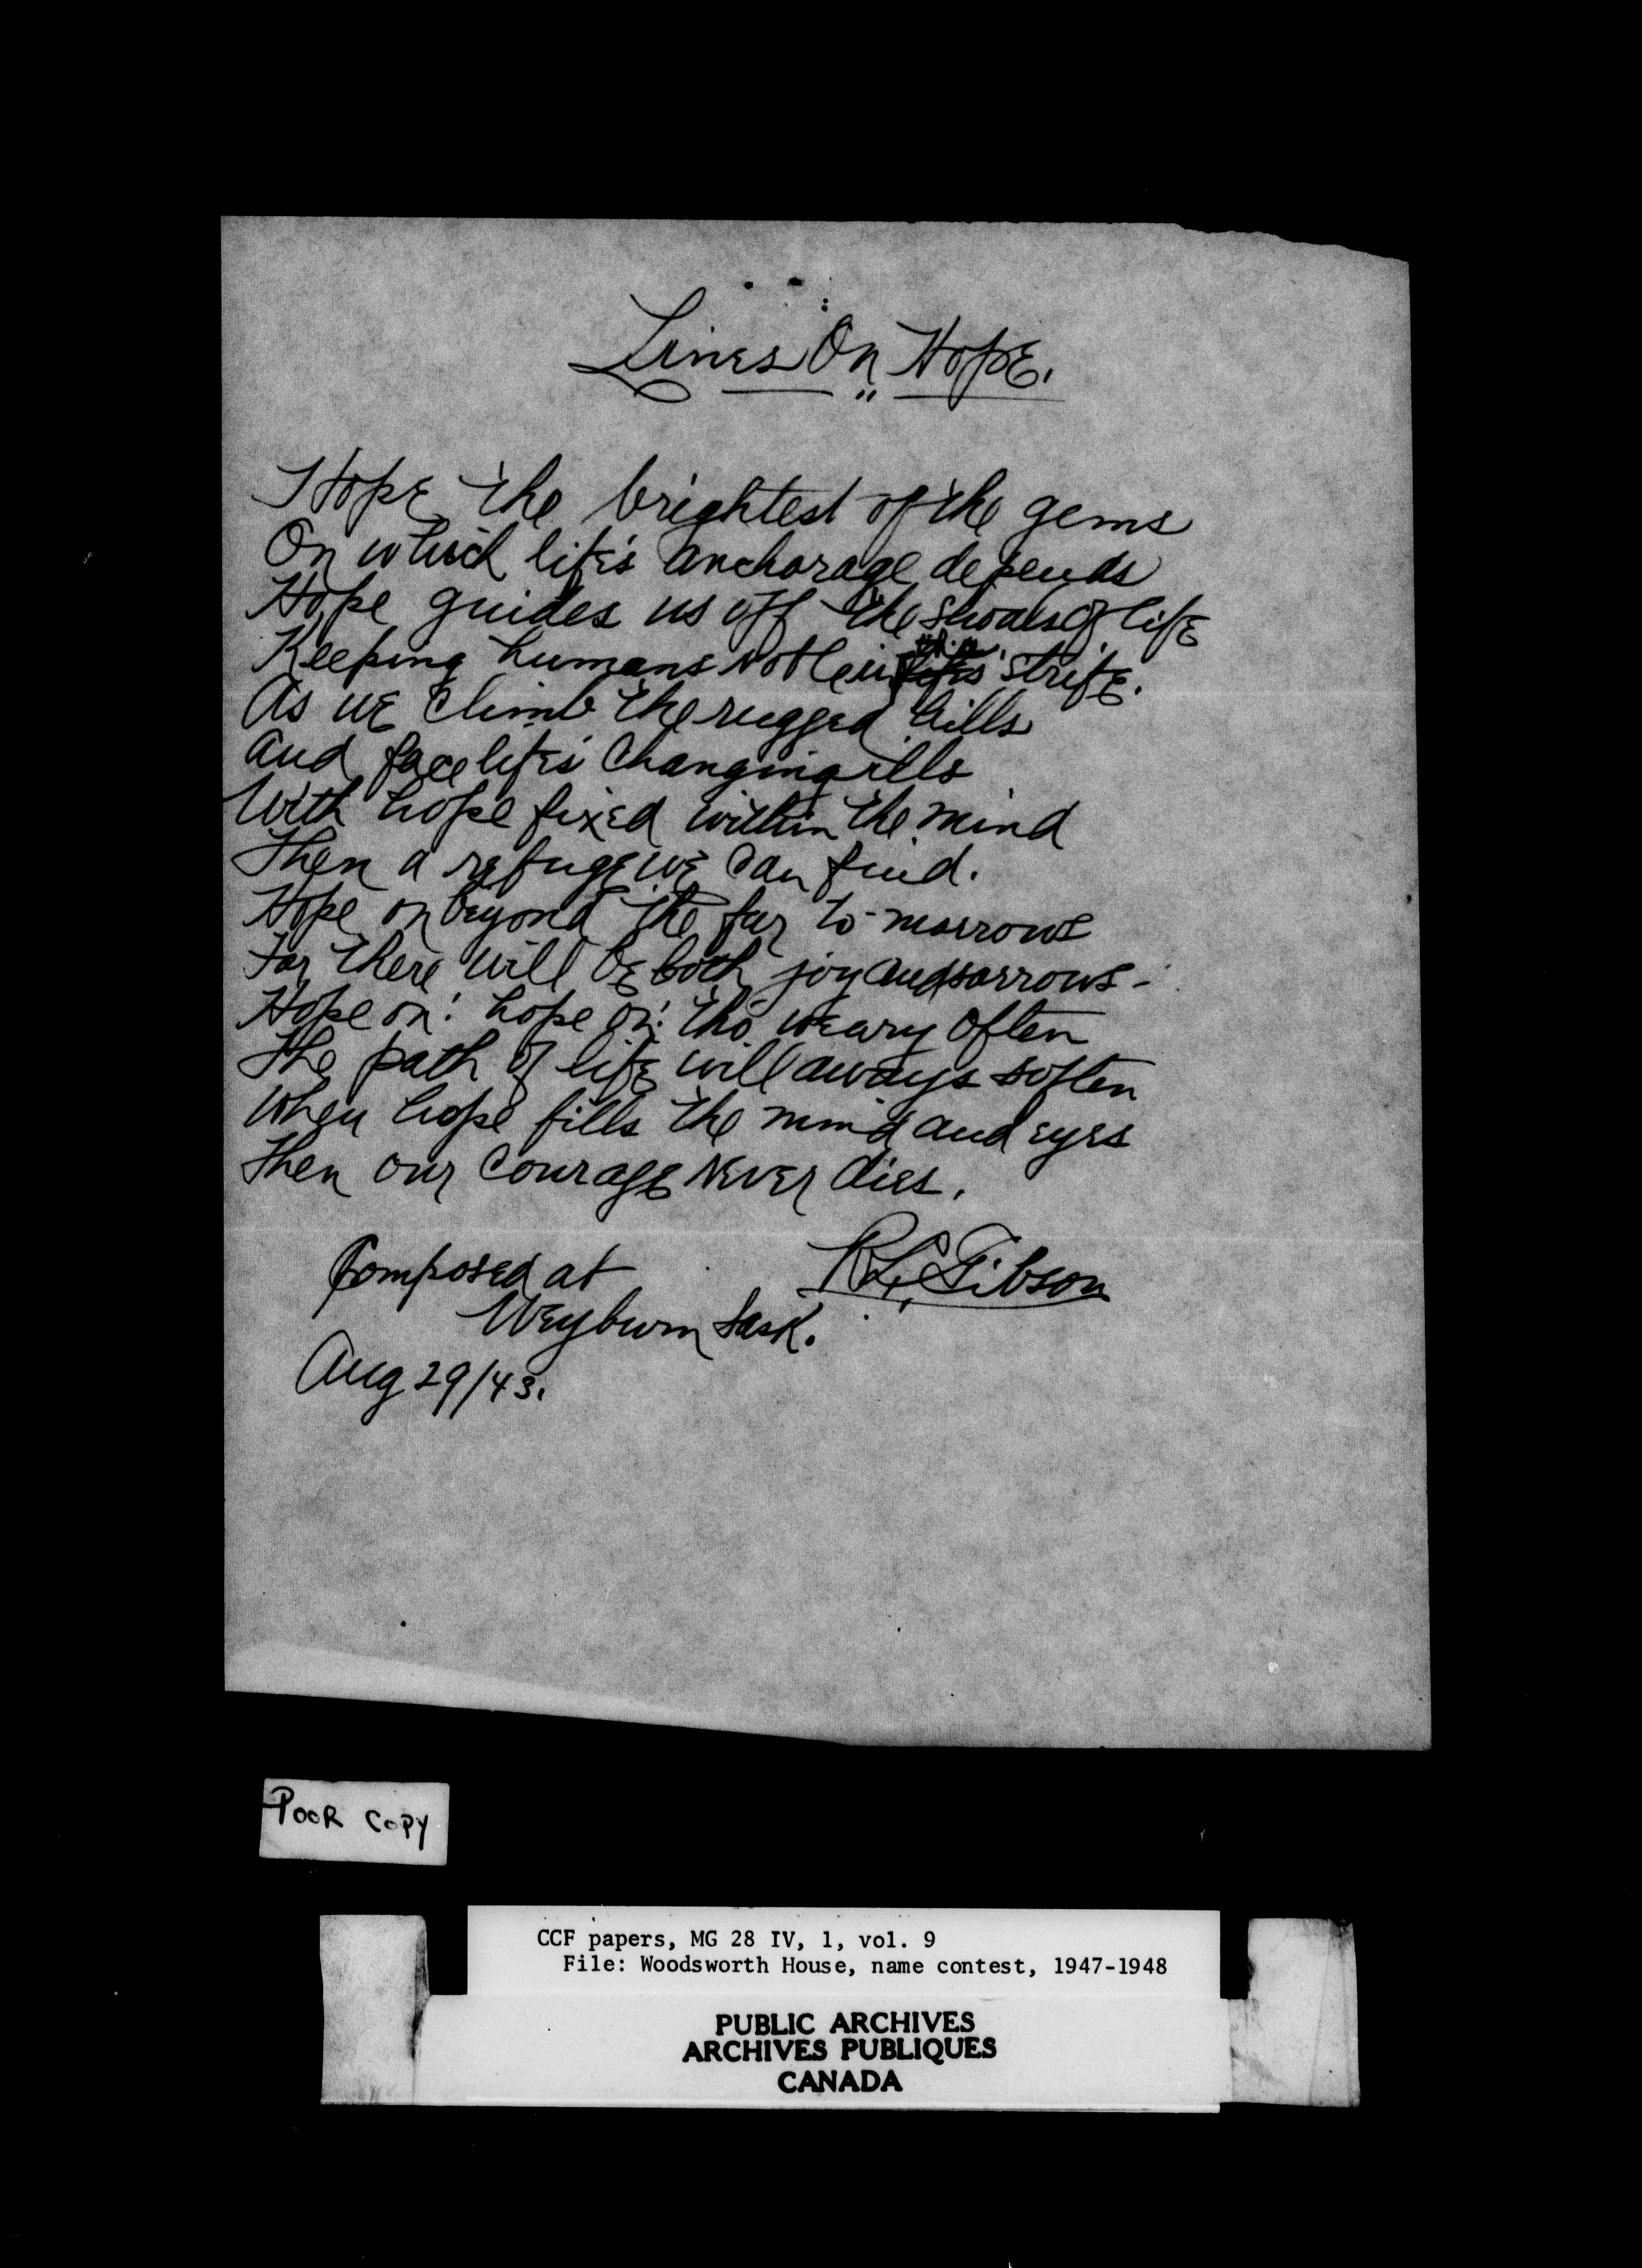 Lines On Hope.
Hope the brightest of the gems
On which life's anchorage depends
Hope guides us off the shoals of life
Keeping humans noble in strife.
As we climb the rugged hills
And face life's changing ills
With hope fixed within the mind
Then a refuge we can find.
Hope on beyond the far to-morrows
For there will be both joy and sorrows-
Hope on! hope on! tho' weary often
The path of life will aways soften
When hope fills the mind and eyes
Then our courage never dies.
Composed at
R.L. Gibson
Weyburn Sask.
Aug 29/43.
POOR COPY
CCF papers, MG 28 IV, 1, vol. 9
File: Woodsworth House, name contest, 1947-1948
PUBLIC ARCHIVES
ARCHIVES PUBLIQUES
CANADA